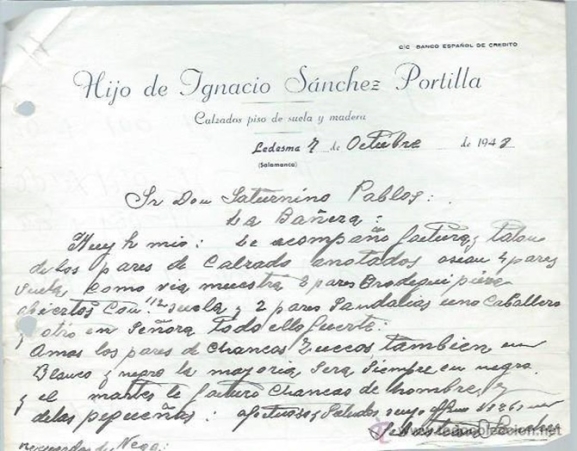 C/C BANCO ESPAÑOL DE CREDITO
Hijo de Ignacio Sánchez Portilla
Calzados piso de suela y madera
Ledesma 7 de Octubre de 1948
(Salamanca)
Sr Don Saturnino Pablos:
La Bañera:
Muy Sr mio: Le acompaño factura y talon
de los pares de Calzado anotados osean 4 pares
suela, como via muestra 3 pares Brodequi
abiertos con suela y 2 pares Sandalias uno Caballero
y otro en Señora todo ello fuerte:
Amas los pares de Chancas Zuecos, tambien en
Blanco y negro la mayoria sera siempre en negro
y el martes le facturo Chancas de hombre, y
de las pequeñas: afectuosos Saludos suyo affmo
Sebastian Sanchez
todocoleccion.net